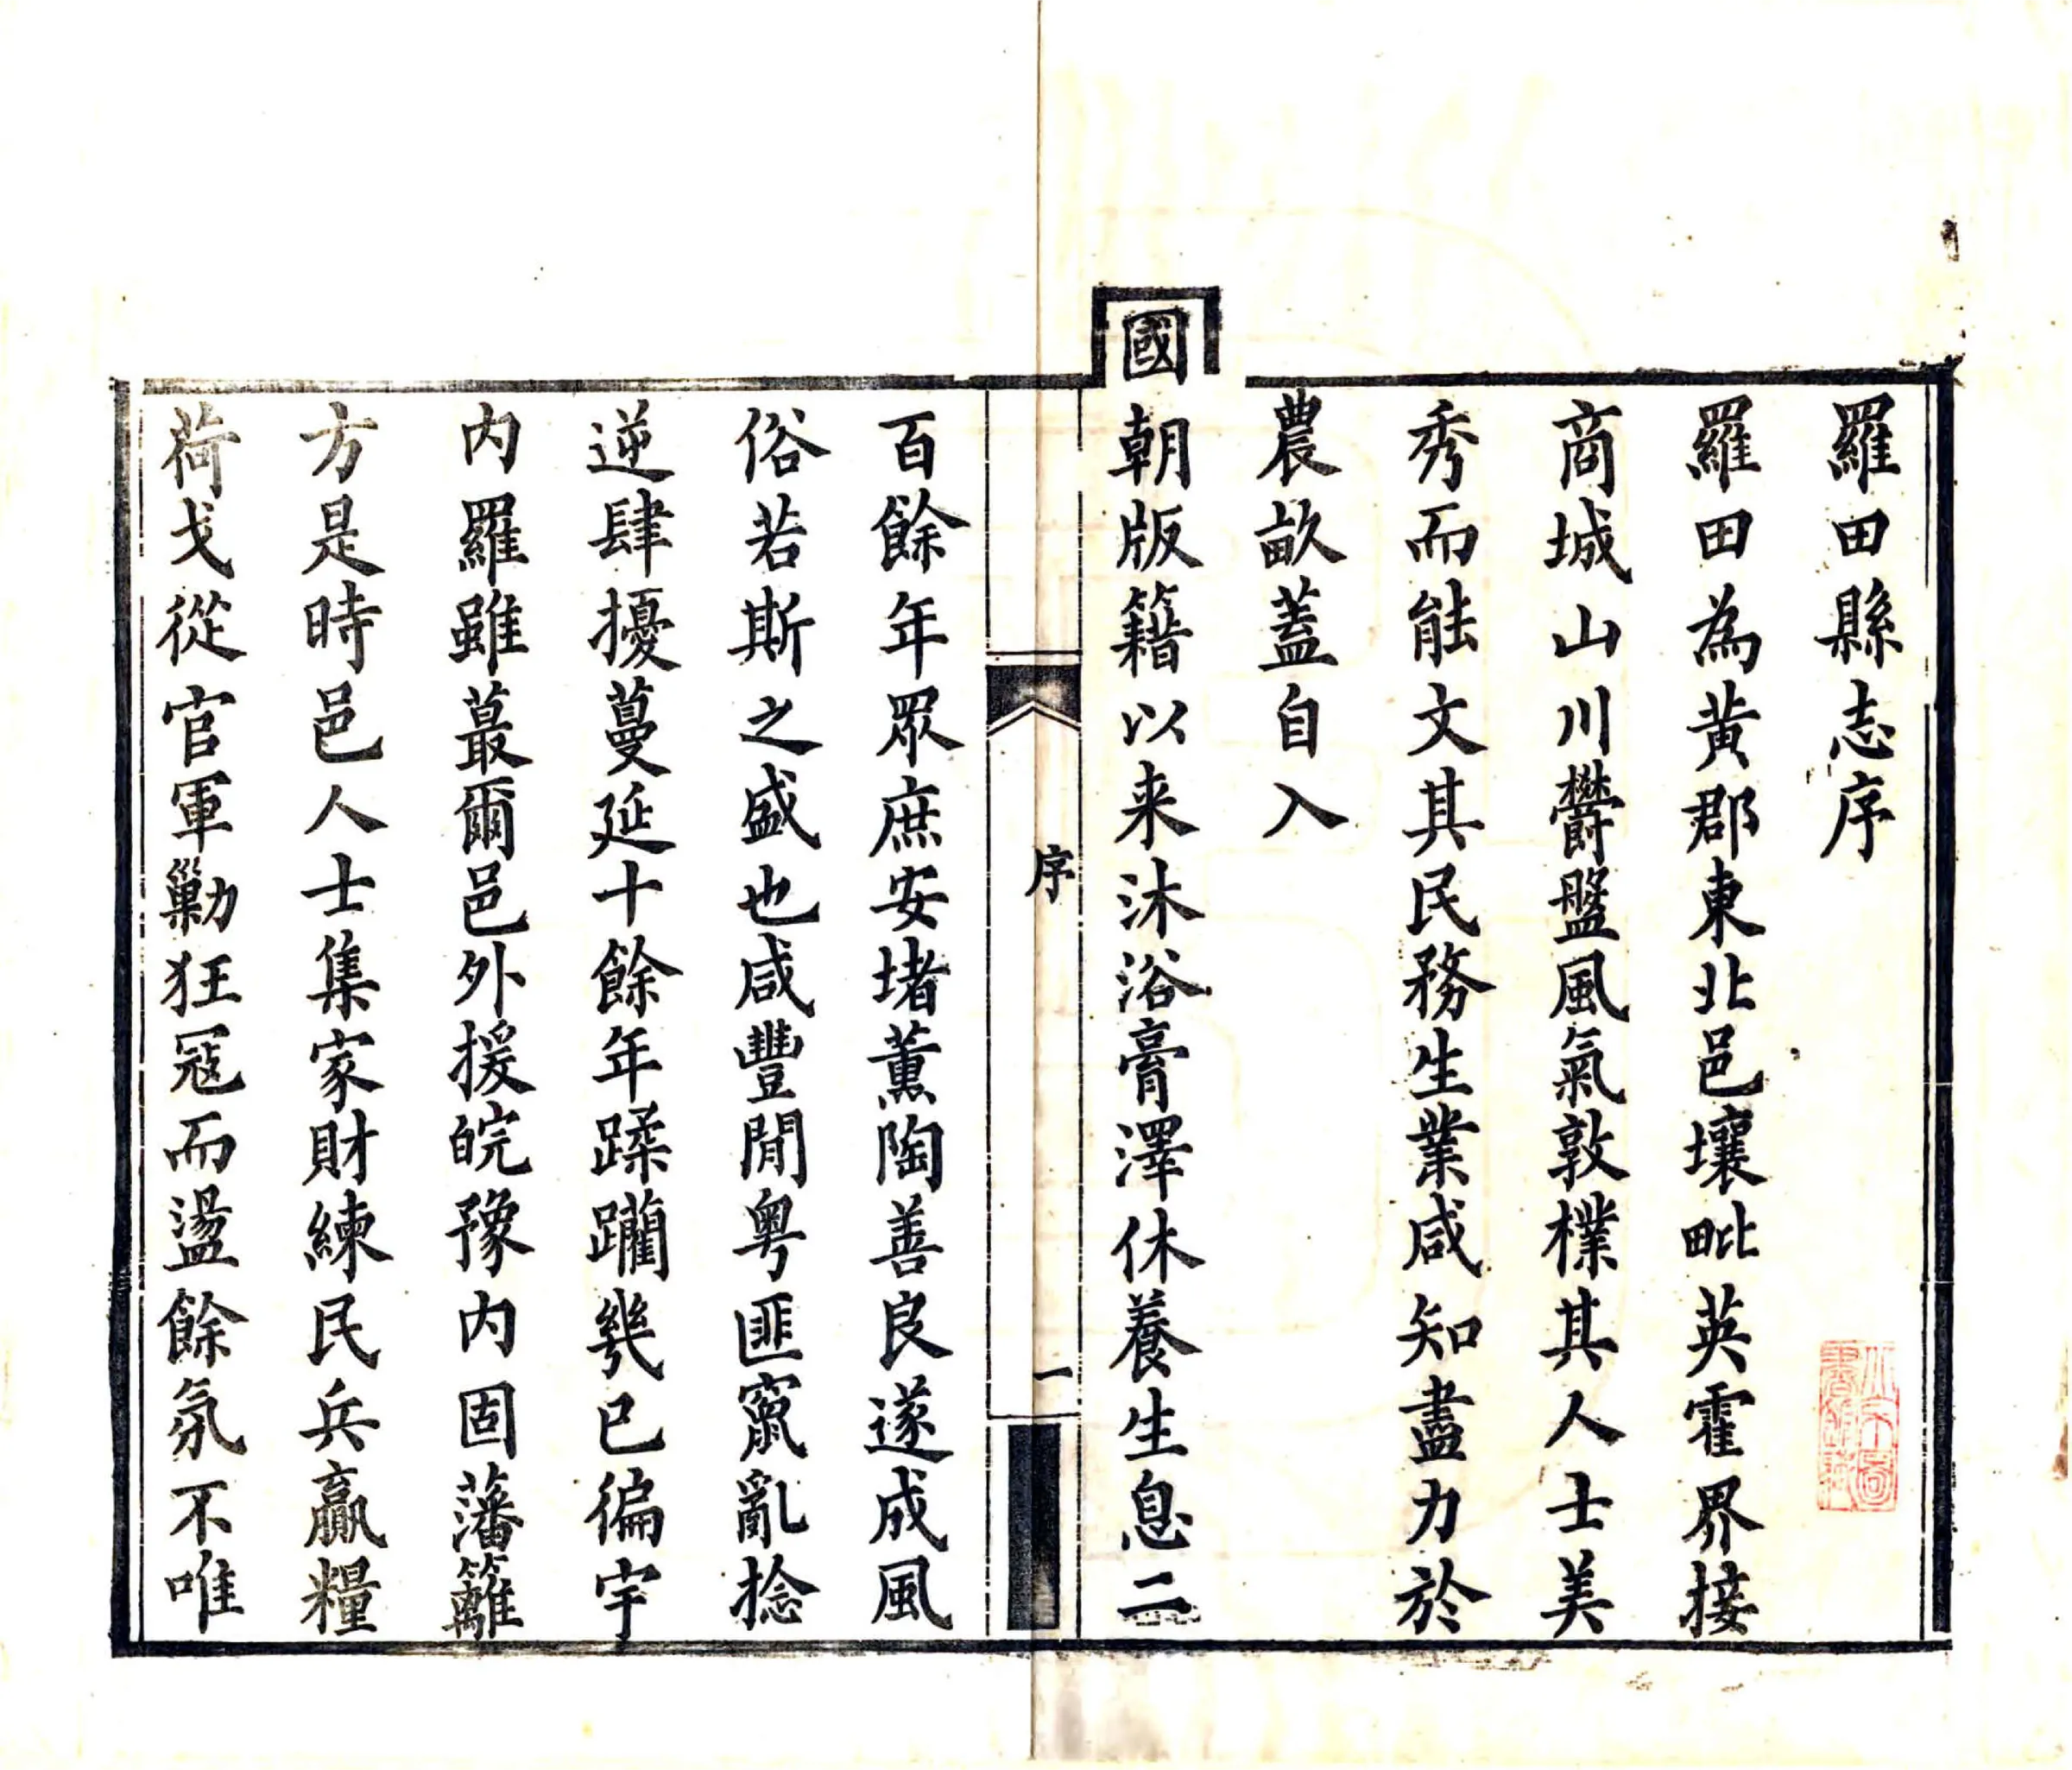 羅田縣志序
羅田為黃郡東北邑壤毗英霍界接
商城山川欝盤風氣敦樸其人士美
秀而能文其民務生業咸知盡力於
農畝蓋自入
國朝版籍以来沐浴膏澤休養生息二
序
一
百餘年眾庶安堵薰陶善良遂成風
俗若斯之盛也咸豐閒粤匪竄亂捻
逆肆擾蔓延十餘年蹂躪幾已徧宇
内羅雖蕞爾邑外援皖豫内固藩籬
方是時邑人士集家財練民兵贏糧
荷戈從官軍勦狂冦而盪餘氛不唯